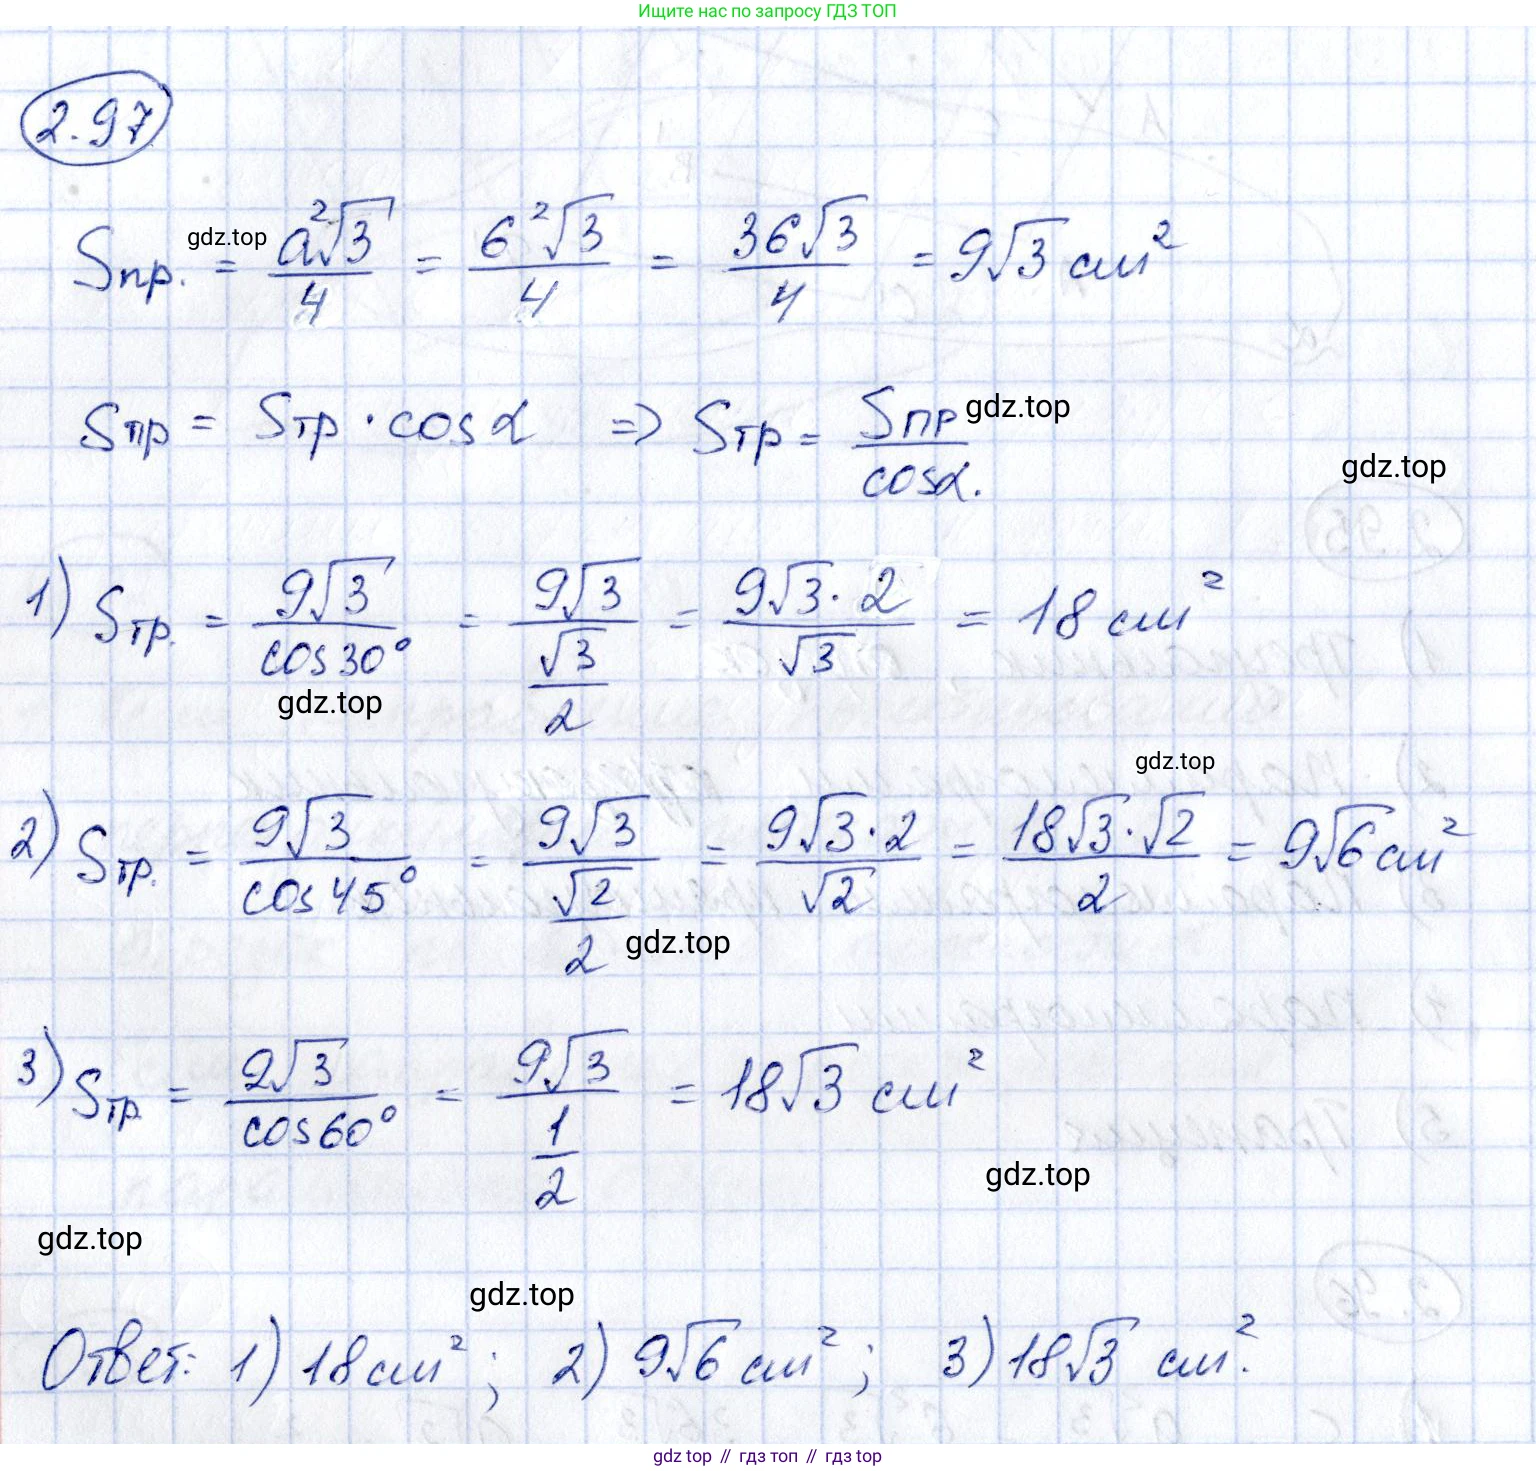 Ищите нас по запросу ГДЗ ТОП
2.97
Sпр. = a²√3/4 = 6²√3/4 = 36√3/4 = 9√3 см²
gdz.top
Sпр = Sтр · cos α ⇒ Sтр = Sпр/cos α.
gdz.top
gdz.top
1) Sтр. = 9√3/cos 30° = 9√3/(√3/2) = 9√3 · 2/√3 = 18 см²
gdz.top
gdz.top
2) Sтр. = 9√3/cos 45° = 9√3/(√2/2) = 9√3 · 2/√2 = 18√3 · √2/2 = 9√6 см²
gdz.top
3) Sтр. = 2√3/cos 60° = 9√3/(1/2) = 18√3 см²
gdz.top
gdz.top
gdz.top
Ответ: 1) 18 см²; 2) 9√6 см²; 3) 18√3 см².
gdz top // гдз топ // гдз top